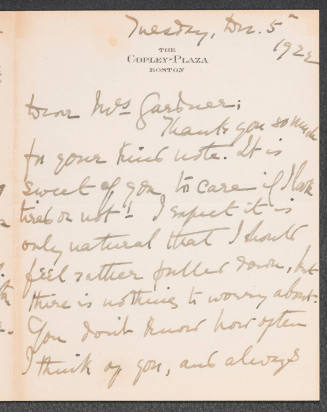 Tuesday, Dec. 5
1922
THE
COPLEY-PLAZA
BOSTON
Dear Mrs Gardner;
Thank you so much
for your kind note. It is
sweet of you to care if I look
tired or not! I expect it is
only natural that I should
feel rather pulled down, but
there is nothing to worry about.
You don't know how often
I think of you, and always